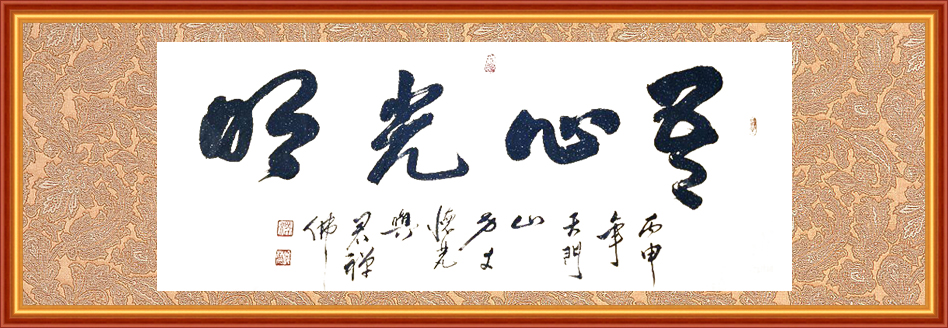 吾心光明
丙申年天門山方丈光與禅佛